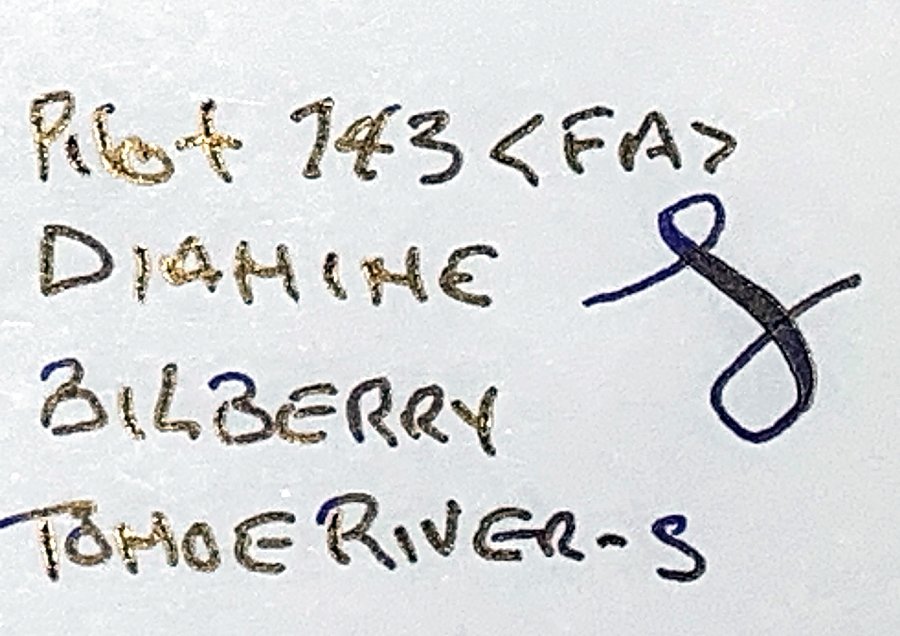 Pilot 743 <FA>
DIAMINE
BILBERRY
TOMOE RIVER-S